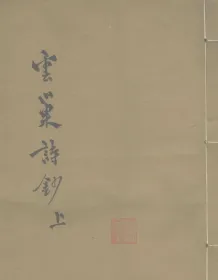 雲巢詩鈔上